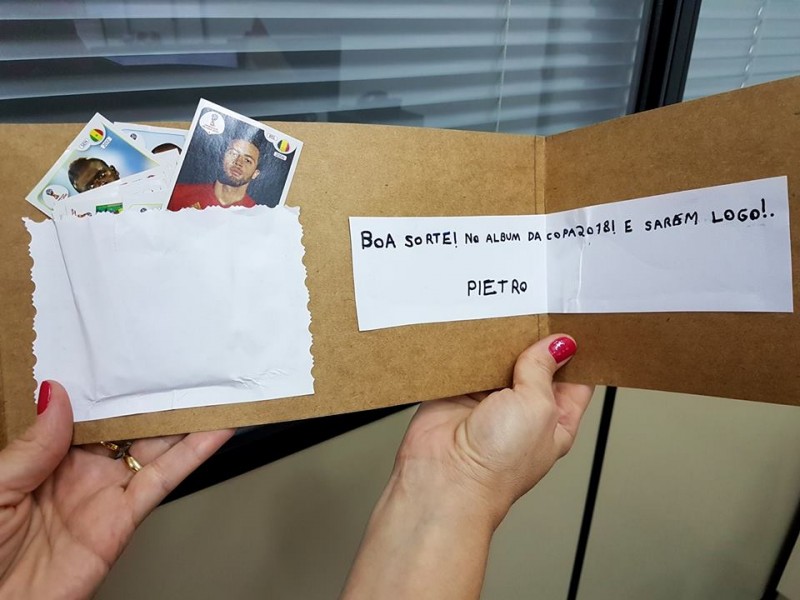 BOA SORTE! NO ALBUM DA COPA2018! E SAREM LOGO!.
PIETRO